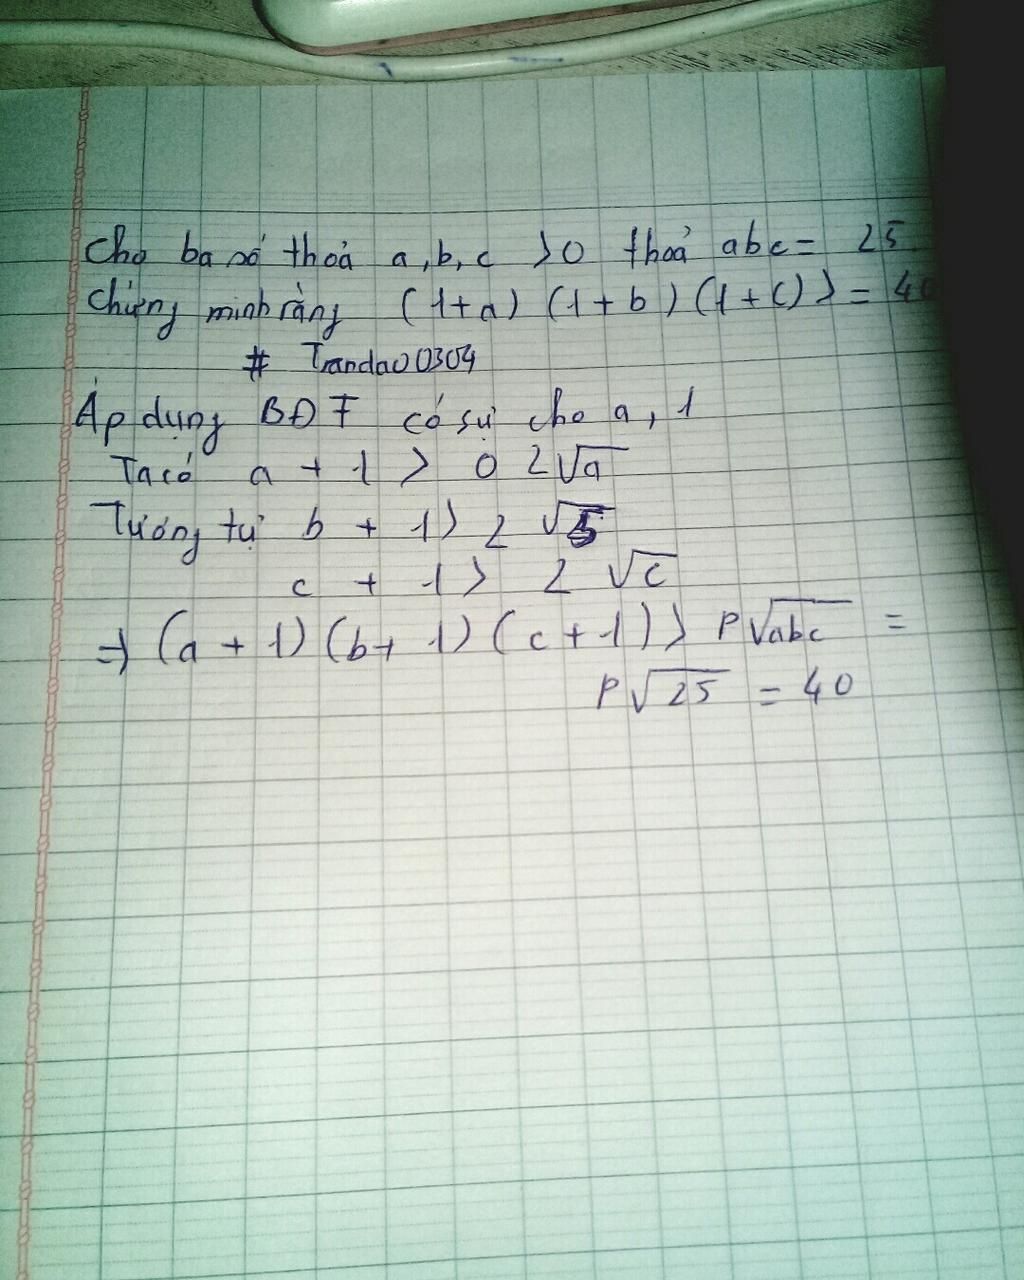 Cho ba số thoả a, b, c > 0 thoả abc = 25
Chứng minh rằng (1+a) (1+b) (1+c) >= 40
# Trandao0304
Áp dụng BĐT cô sự cho a, 1
Ta có a + 1 > 0 2√a
Tương tự b + 1 > 2 √b
c + 1 > 2 √c
=> (a + 1) (b + 1) (c + 1) > P√abc =
P√25 = 40